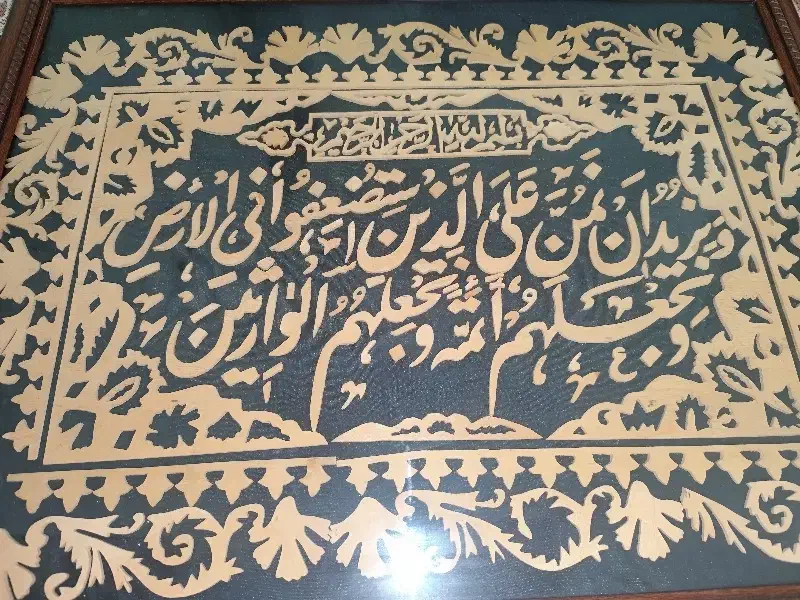 بسم الله الرحمن الرحیم
و نرید ان نمن علی الذین استضعفوا فی الارض
و نجعلهم ائمة و نجعلهم الوارثین